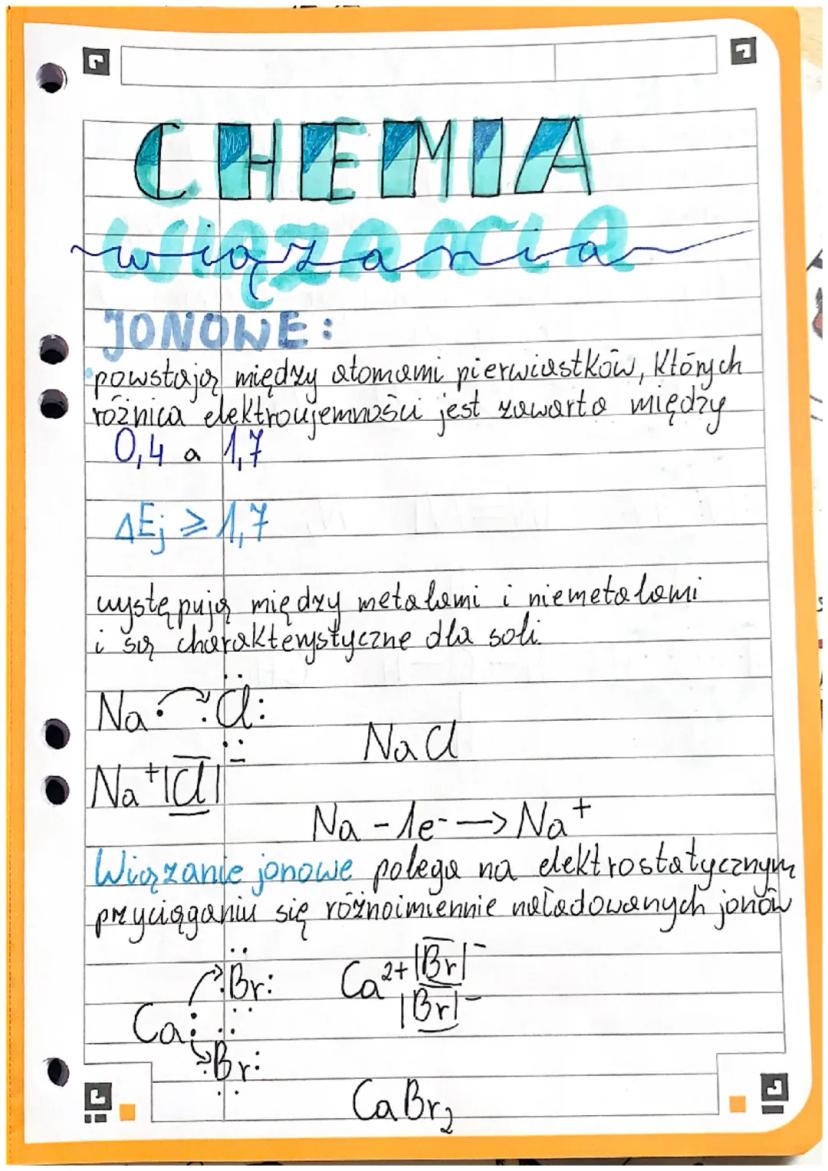 CHEMIA
wiązania
JONOWE:
powstają między atomami pierwiastków, których
różnica elektroujemności jest zawarta między
0,4 a 1,7
ΔEj ⩾ 1,7
występują między metalami i niemetalami
i są charakterystyczne dla soli.
Na· :Cl:
NaCl
Na⁺|Cl|⁻
Na - 1e⁻ → Na⁺
Wiązanie jonowe polega na elektrostatycznym
przyciąganiu się różnoimiennie naładowanych jonów
Ca: :Br: :Br:
Ca²⁺ |Br|⁻
|Br|⁻
CaBr₂